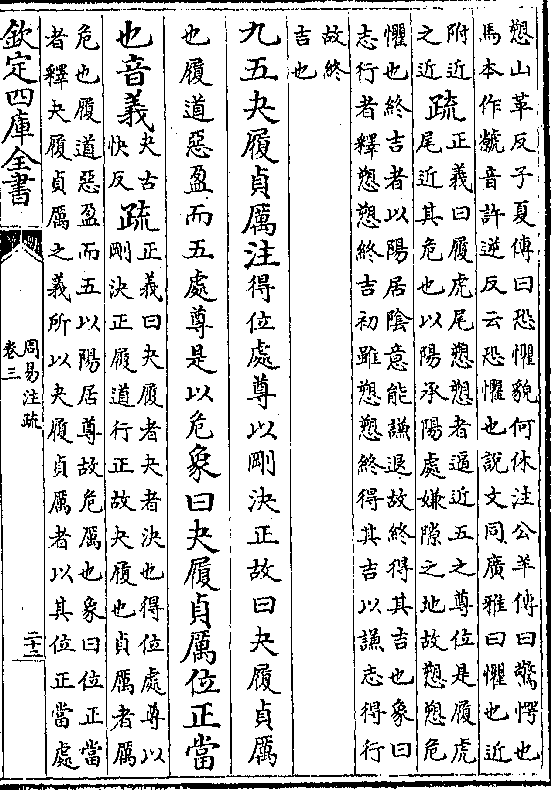 愬山革反子夏傳曰恐懼貌何休注公羊傳曰驚愕也
馬本作虩音許逆反云恐懼也説文同廣雅曰懼也近
附近
之近
疏
正義曰履虎尾愬愬者逼近五之尊位是履虎
尾近其危也以陽承陽處嫌隙之地故愬愬危
懼也終吉者以陽居陰意能謙退故終得其吉也象曰
志行者釋愬愬終吉初雖愬愬終得其吉以謙志得行
故終
吉也
九五夬履貞厲注得位處尊以剛決正故曰夬履貞厲
也履道惡盈而五處尊是以危象曰夬履貞厲位正當
也音義
夬古
快反
疏
正義曰夬履者夬者決也得位處尊以
剛決正履道行正故夬履也貞厲者厲
危也履道惡盈而五以陽居尊故危厲也象曰位正當
者釋夬履貞厲之義所以夬履貞厲者以其位正當處
欽定四庫全書
周易注疏
卷三
二十二